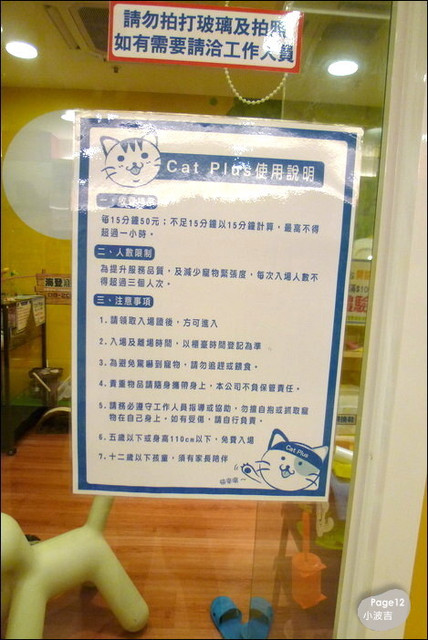 請勿拍打玻璃及拍照
如有需要請洽工作人員
Cat Plus使用說明
每15分鐘50元；不足15分鐘以15分鐘計算，最高不得
超過一小時。
二、人數限制
為提升服務品質，及減少寵物緊張度，每次入場人數不
得超過三個人次。
三、注意事項
1.請領取入場證後，方可進入
2.入場及離場時間，以櫃臺時間登記為準
3.為避免驚嚇到寵物，請勿追趕或餵食。
4.貴重物品請隨身攜帶身上，本公司不負保管責任。
5.請務必遵守工作人員指導或協助，勿擅自抱或抓取寵
物在自己身上，如有受傷，請自行負責。
6.五歲以下或身高110cm以下，免費入場
7.十二歲以下孩童，須有家長陪伴
Cat Plus
Page12
小波吉